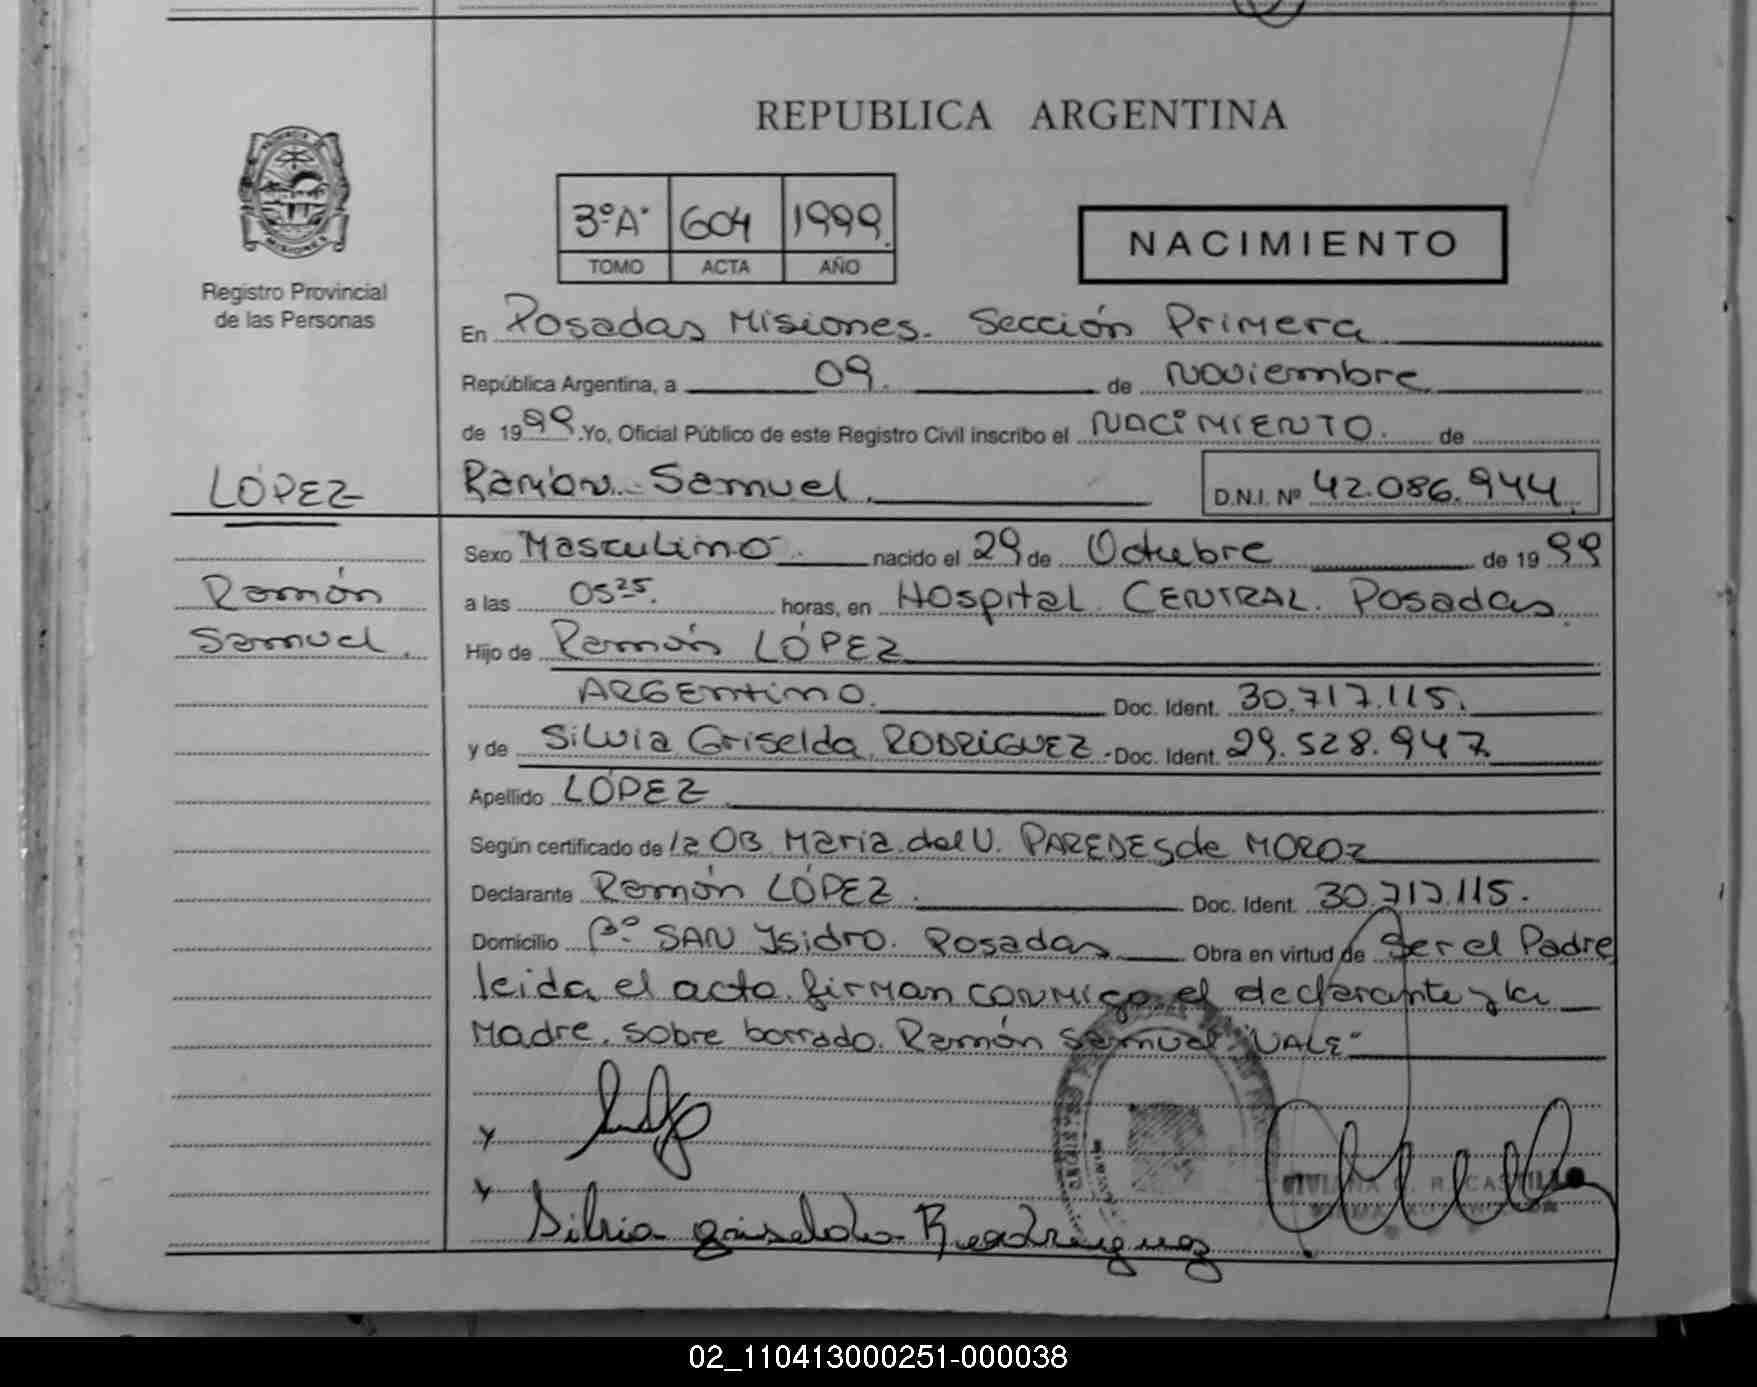 REPUBLICA ARGENTINA
PROVINCIA
MISIONES
Registro Provincial
de las Personas
3ºA· 604 1999.
TOMO ACTA AÑO
NACIMIENTO
En Posadas Misiones. Sección Primera
República Argentina, a 09. de Noviembre
de 1999. Yo, Oficial Público de este Registro Civil inscribo el NACIMIENTO. de
LÓPEZ
Ramón Samuel
D.N.I. Nº 42.086.944
Sexo Masculino nacido el 29 de Octubre de 1999
Ramón
Samuel.
a las 05 25. horas, en Hospital CENTRAL. Posadas
Hijo de Ramón LÓPEZ
ARGENtino. Doc. Ident. 30.717.115.
y de Silvia Griselda RODRIGUEZ - Doc. Ident. 29.528.947
Apellido LÓPEZ
Según certificado de la OB Maria del V. PAREDES de MOROZ
Declarante Ramón LÓPEZ. Doc. Ident. 30.717.115.
Domicilio Bº SAN Ysidro. Posadas Obra en virtud de Ser el Padre
leida el acta firman conmigo el declarante y la
Madre. sobre borrado. Ramón Samuel "VALE"
Silvia Griselda Rodriguez
02_110413000251-000038